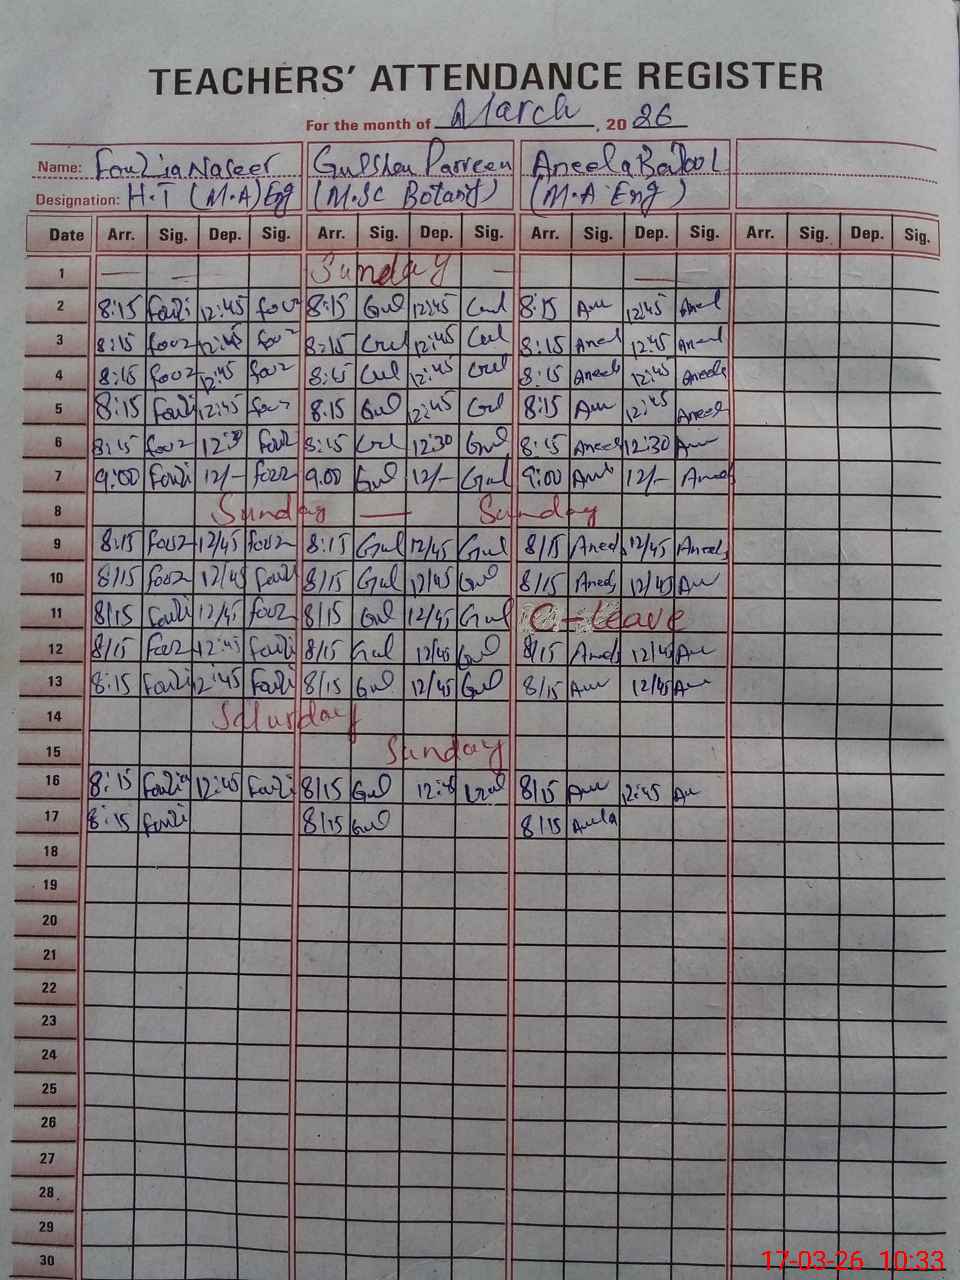 TEACHERS' ATTENDANCE REGISTER
For the month of March, 2026
Name: Fouzia Naseer Gulshan Parveen Aneela Batool
Designation: H.T (M.A) Eng (M.SC Botany) (M.A Eng)
Date Arr. Sig. Dep. Sig. Arr. Sig. Dep. Sig. Arr. Sig. Dep. Sig. Arr. Sig. Dep. Sig.
1 Sunday
2 8:15 Fouzi 12:45 fouz 8:15 Gul 12:45 Gul 8:15 12:45 Aneel
3 8:15 fouz 12:45 fouz 8:15 Gul 12:45 Gul 8:15 Aneel 12:45 Aneel
4 8:15 fouz 12:45 fouz 8:15 Gul 12:45 Gul 8:15 Aneela 12:45 Aneela
5 8:15 Fouzi 12:45 fouz 8:15 Gul 12:45 Gul 8:15 12:45 Aneela
6 8:45 fouz 12:30 Fouz 8:45 Gul 12:30 Gul 8:45 Aneela 12:30
7 9:00 Fouzi 12/- fozz 9.00 Gul 12/- Gul 9:00 12/- Aneela
8 Sunday — Sunday
9 8:15 fouz 12/45 fouz 8:15 Gul 12/45 Gul 8/15 Aneela 12/45 Aneela
10 8/15 fouz 12/45 Fouzi 8/15 Gul 12/45 Gul 8/15 Aneela 12/45
11 8/15 Fouzi 12/45 fouz 8/15 Gul 12/45 Gul C-Leave
12 8/15 Fouz 12:45 Fouzi 8/15 Gul 12/45 Gul 8/15 Aneela 12/45
13 8:15 Fouzi 12:45 Fouzi 8/15 Gul 12/45 Gul 8/15 12/45
14 Saturday
15 Sunday
16 8:15 Fouzia 12:45 Fouzi 8/15 Gul 12:45 Gul 8/15 12:45
17 8:15 Fouzi 8/15 Gul 8/15
18
19
20
21
22
23
24
25
26
27
28
29
30
17-03-26 10:33